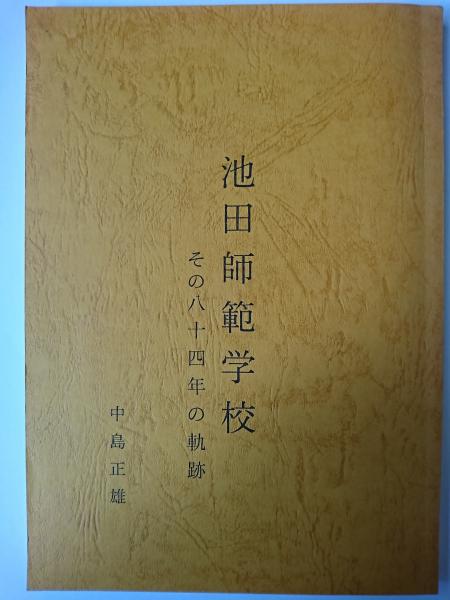 池田師範学校
その八十四年の軌跡
中島正雄